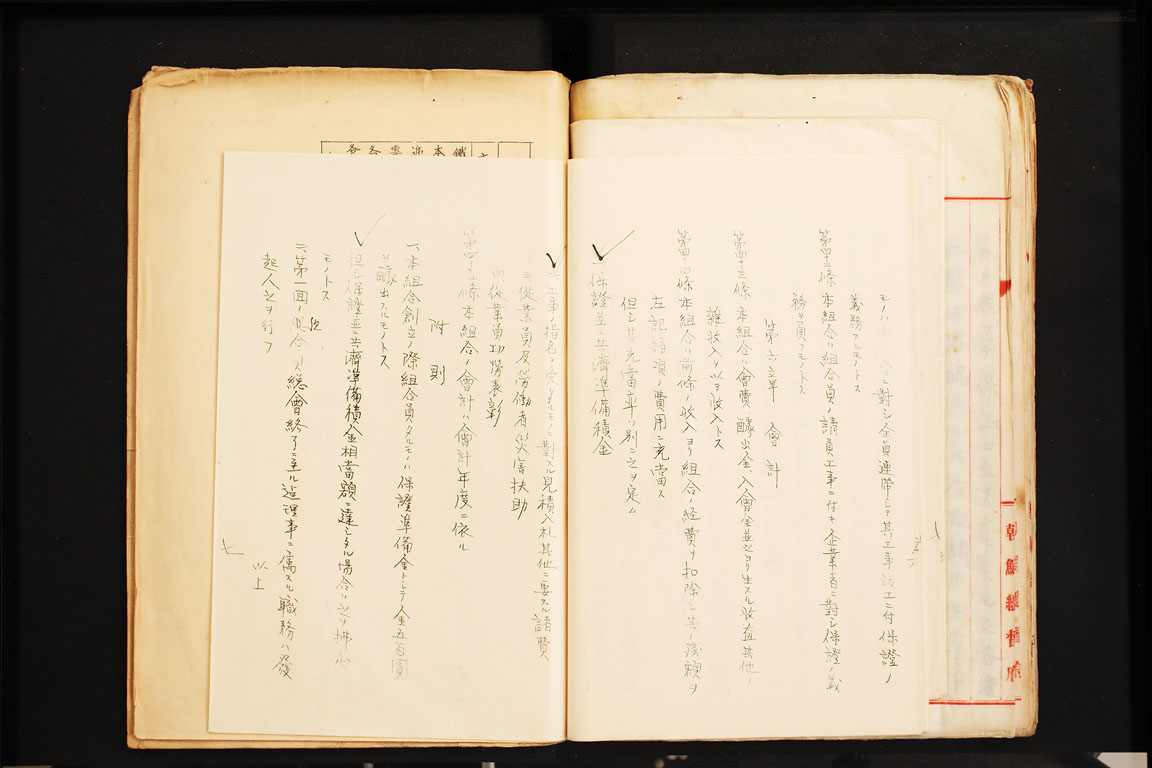 モノハ 對シ全員連帶シテ其工事竣工ニ付保證ノ
義務アルモノトス
第四十二條 本組合ハ組合員ノ請負工事ニ付キ企業者ニ對シ保證ノ義
務ヲ負フモノトス
第六章 會計
第四十三條 本組合ハ會費、醵出金、入會金並之ヨリ生スル收益其他ノ
雜收入ヲ以テ收入トス
第四十四條 本組合ハ前條ノ收入ヨリ組合ノ経費ヲ扣除シ其ノ殘額ヲ
左記諸項ノ費用ニ充當ス
但シ其充當率ハ別ニ之ヲ定ム
一、保證並ニ共濟準備積金
二、工事ノ指名ヲ受ケタルモノニ對スル見積入札其他ニ要スル諸費
三、從業員及勞働者災害扶助
四、從業員功勞表彰
第四十五條 本組合ノ會計ハ會計年度ニ依ル
附則
一、本組合創立ノ際組合員タルモノハ保證準備金トシテ金五百圓
ヲ醵出スルモノトス
但シ保證並ニ共濟準備積金相當額ニ達シタル場合ハ之ヲ拂戻
モノトス
二、第一回ノ総會終了ニ至ル迄理事ニ屬スル職務ハ發
起人之ヲ行フ
以上
七
朝鮮總督府